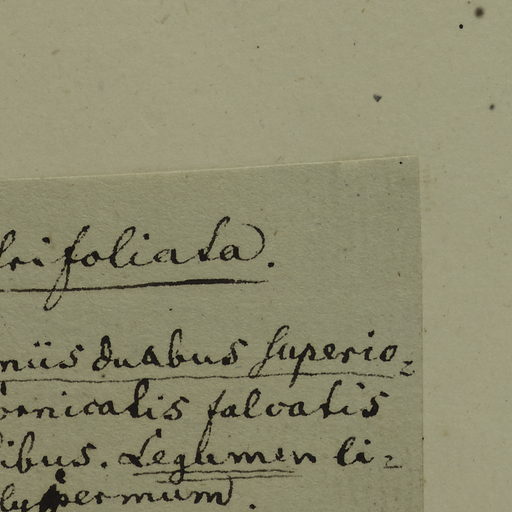 trifoliata.
niis duabus superio-
ornicatis falcatis
ibus. Legumen li-
lyspermum.